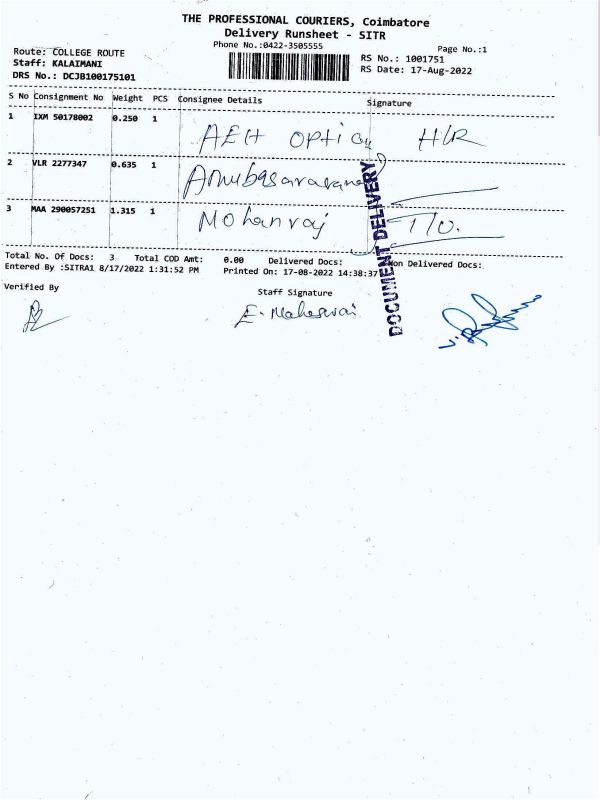 THE PROFESSIONAL COURIERS, Coimbatore
Delivery Runsheet - SITR
Phone No.:0422-3505555
Page No.:1
Route: COLLEGE ROUTE
Staff: KALAIMANI
DRS No.: DCJB100175101
RS No.: 1001751
RS Date: 17-Aug-2022
S No Consignment No Weight PCS Consignee Details Signature
1 IXM 50178002 0.250 1 AEH OPtical
2 VLR 2277347 0.635 1
3 MAA 290057251 1.315 1 Mohanraj
DOCUMENT DELIVERY
Total No. Of Docs: 3 Total COD Amt: 0.00 Delivered Docs: Non Delivered Docs:
Entered By :SITRA1 8/17/2022 1:31:52 PM Printed On: 17-08-2022 14:38:37
Verified By
Staff Signature